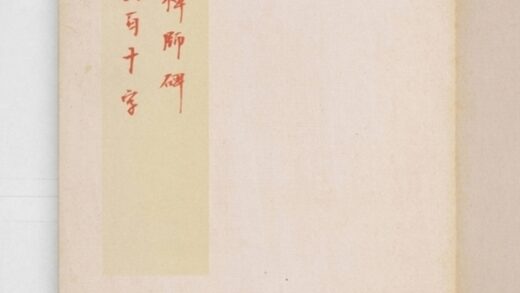 禅師碑
百十字